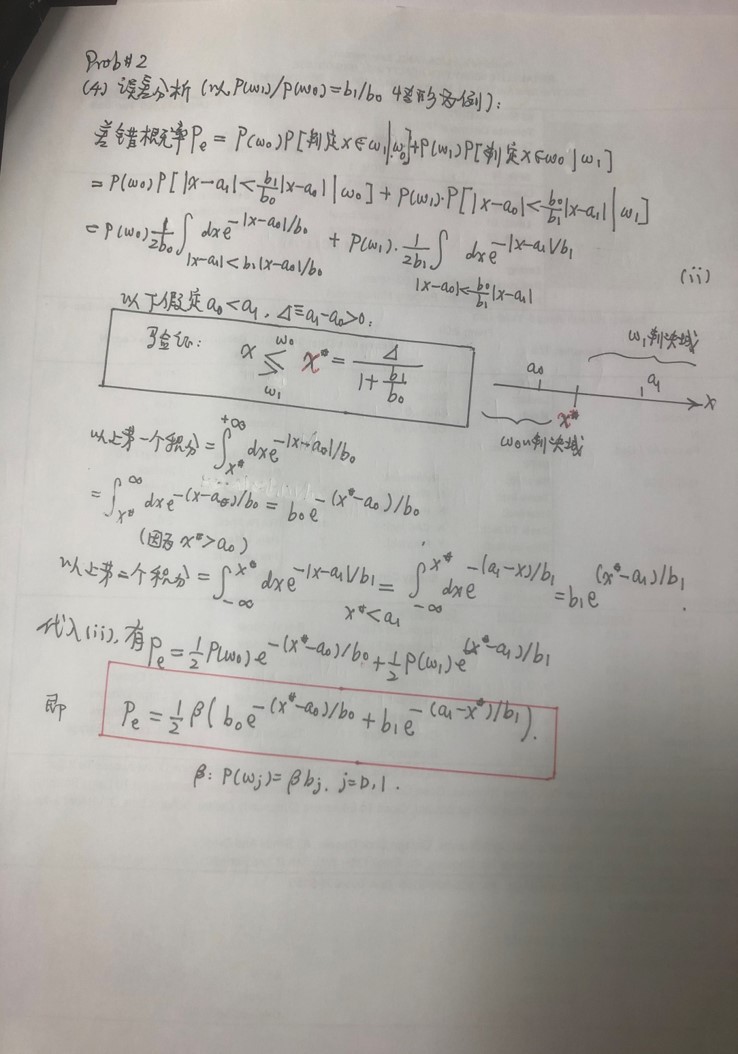 Prob#2
(4) 误差分析 (以P(ω₁)/P(ω₀)=b₁/b₀ 情形为例):
差错概率Pe = P(ω₀)P[判定x∈ω₁|ω₀]+P(ω₁)P[判定x∈ω₀|ω₁]
= P(ω₀)P[|x-a₁|<b₁/b₀|x-a₀| | ω₀] + P(ω₁)·P[|x-a₀|<b₀/b₁|x-a₁| | ω₁]
= P(ω₀) 1/2b₀ ∫ dx e^{-|x-a₀|/b₀} + P(ω₁)· 1/2b₁ ∫ dx e^{-|x-a₁|/b₁}
|x-a₁|<b₁|x-a₀|/b₀ |x-a₀|<b₀/b₁|x-a₁| (ii)
以下假定a₀<a₁, Δ≡a₁-a₀>0:
验证: x ≶ x* = Δ/(1+b₁/b₀)
ω₀
ω₁
ω₁判决域
a₀ a₁ x
x*
判决域
以上第一个积分 = ∫_{x*}^{+∞} dx e^{-|x-a₀|/b₀}
= ∫_{x*}^{∞} dx e^{-(x-a₀)/b₀} = b₀e^{-(x*-a₀)/b₀}
(因为 x*>a₀)
以上第二个积分 = ∫_{-∞}^{x*} dx e^{-|x-a₁|/b₁} = ∫_{-∞}^{x*} dx e^{-(a₁-x)/b₁} = b₁e^{(x*-a₁)/b₁}.
x*<a₁
代入(ii), 有 Pe = ½P(ω₀)e^{-(x*-a₀)/b₀} + ½P(ω₁)e^{(x*-a₁)/b₁}
即 Pe = ½β(b₀e^{-(x*-a₀)/b₀} + b₁e^{-(a₁-x*)/b₁}).
β: P(ωj)=βbj, j=0,1.